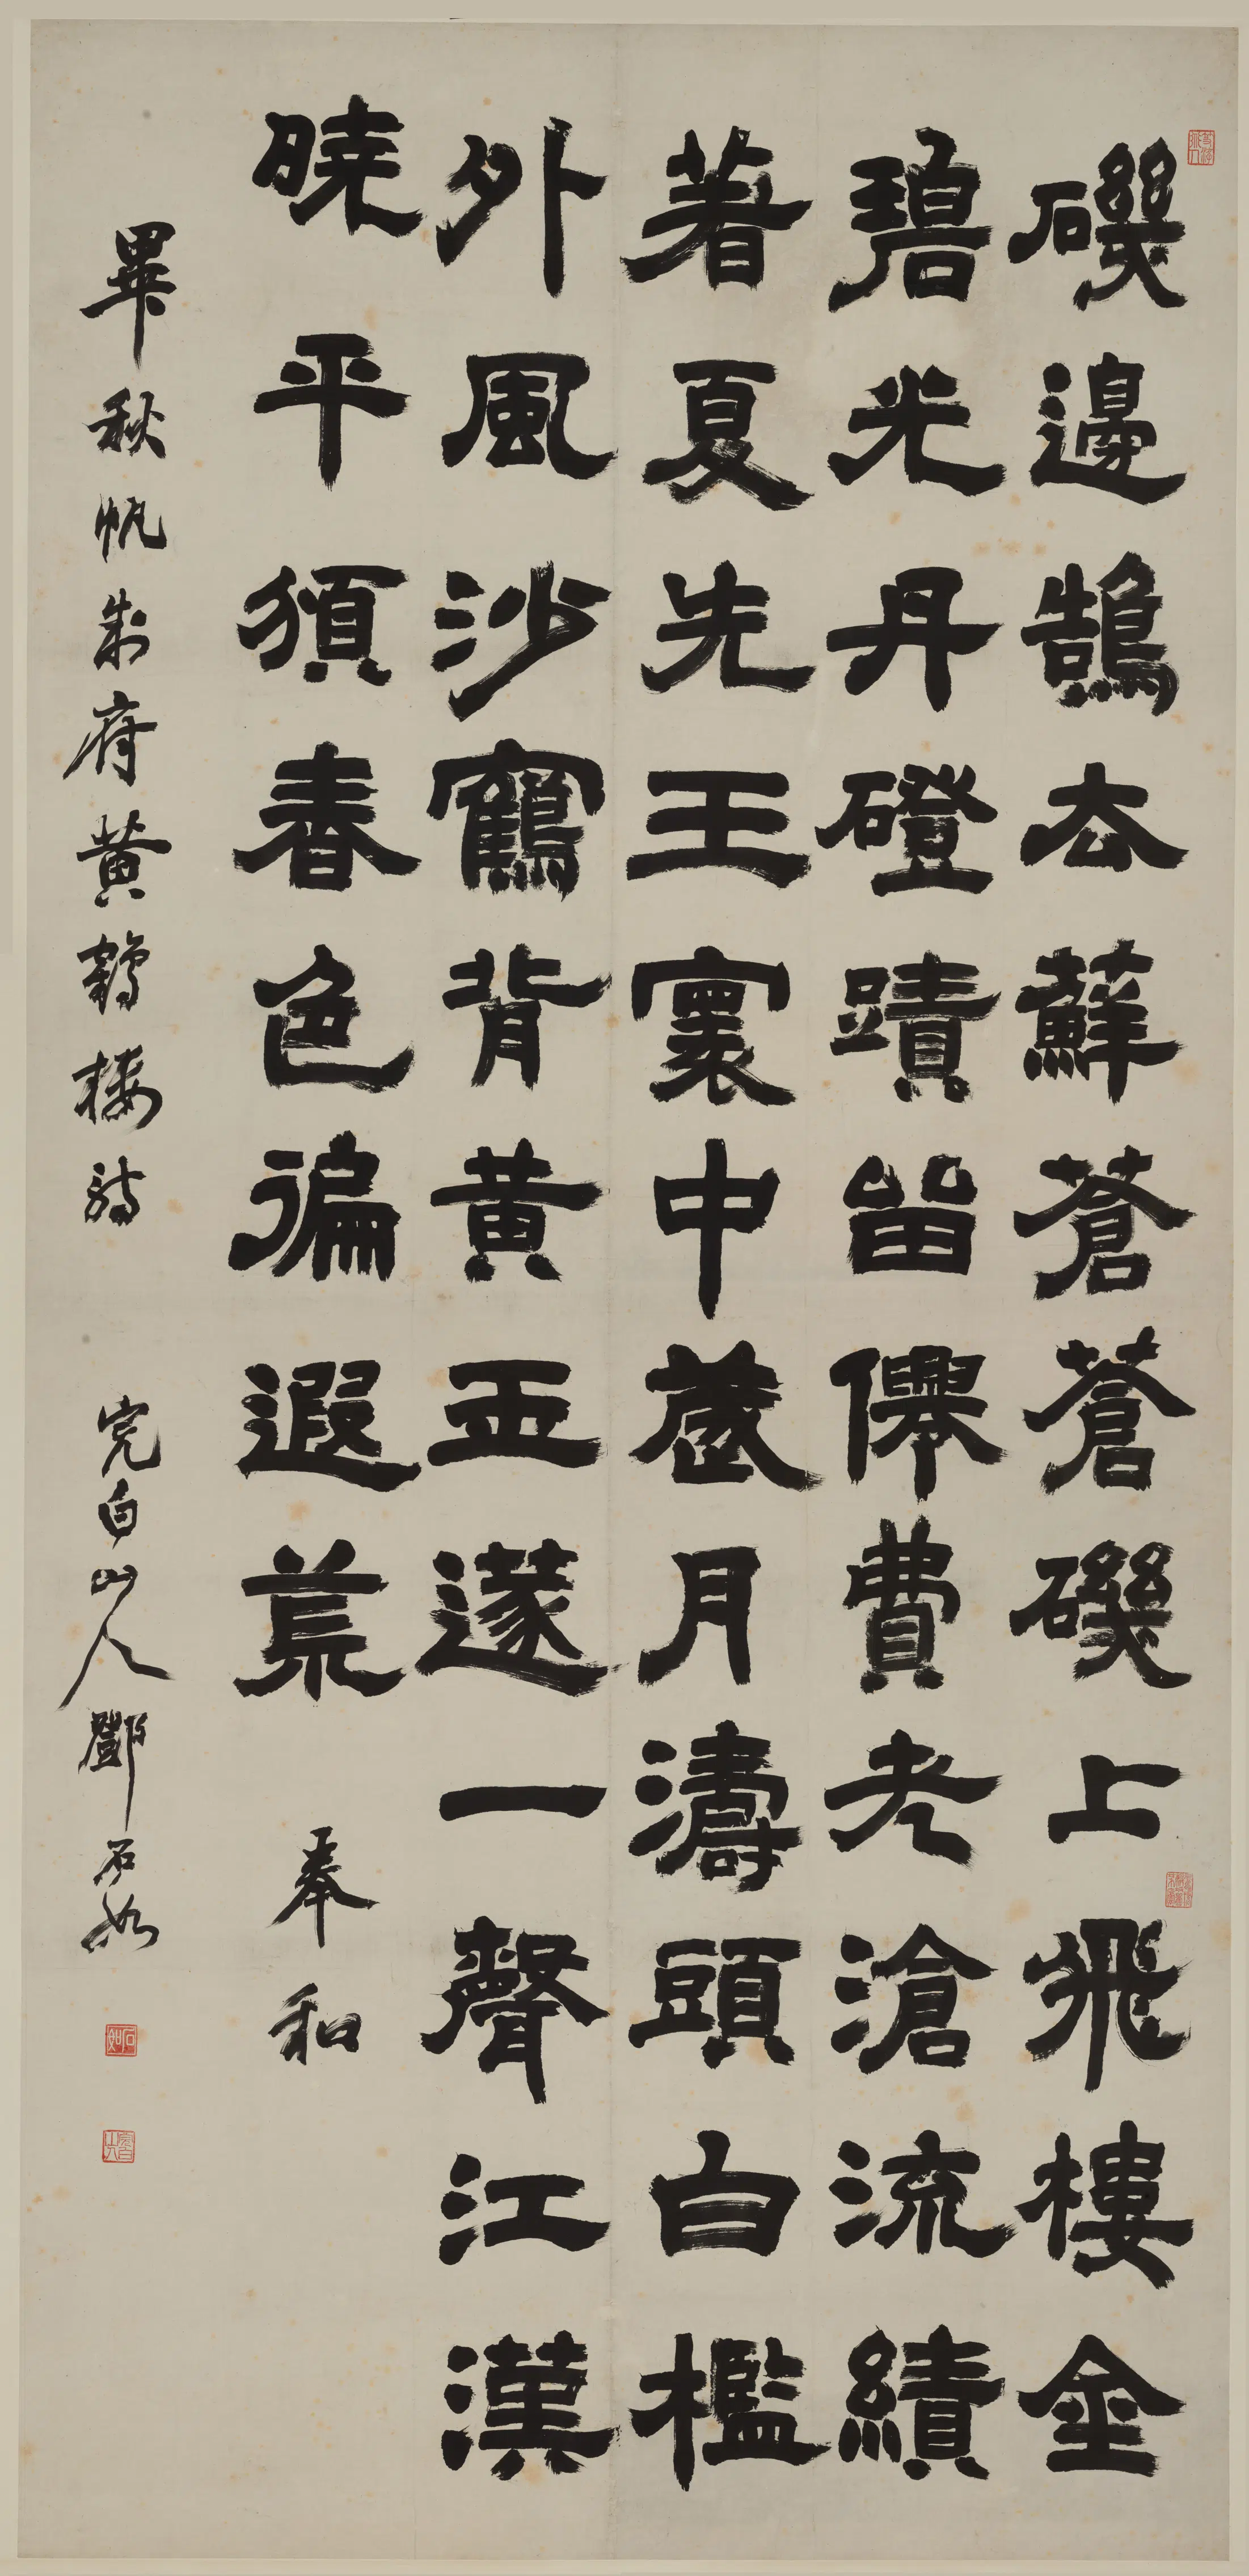 磯邊鵠去蘚蒼蒼磯上飛樓金
碧光丹磴蹟畱僊費老滄流績
著夏先王寰中歲月濤頭白檻
外風沙鶴背黃玉篴一聲江漢
曉平頒春色徧遐荒 奉和
畢秋帆制府黃鶴樓詩 完白山人鄧石如
石如
完白山人